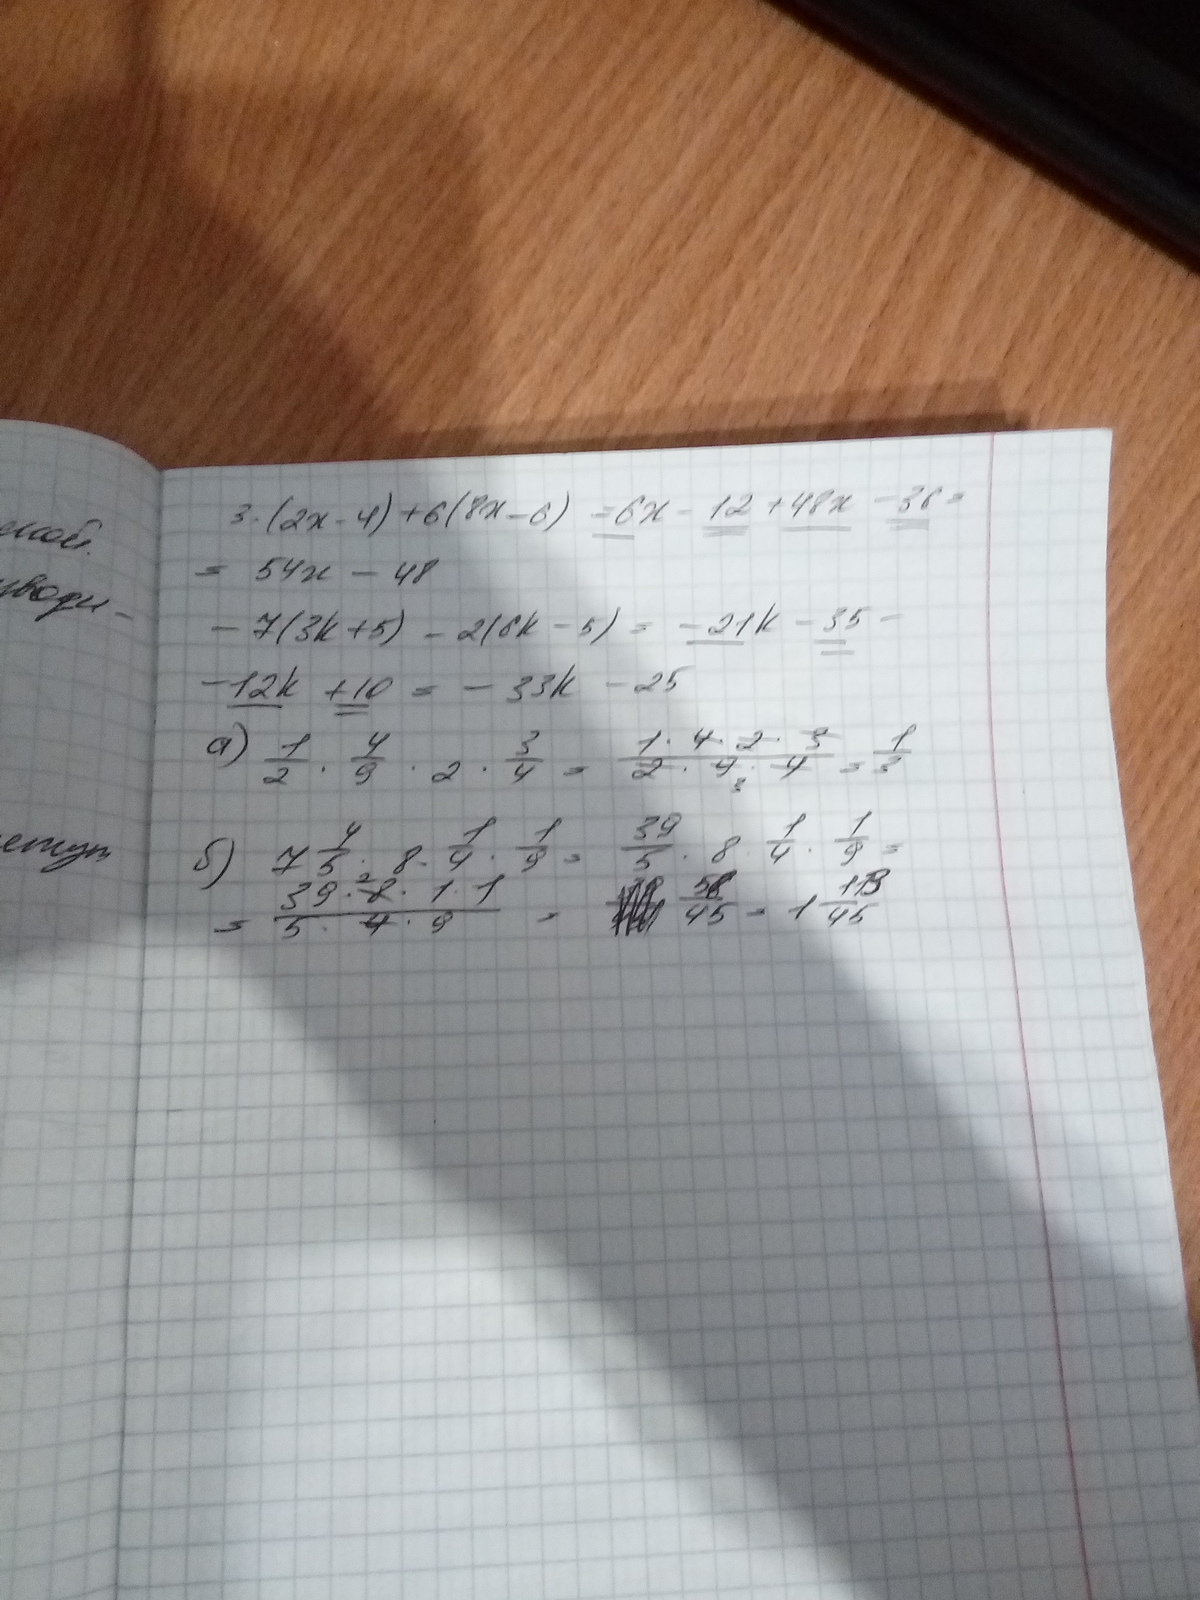 ской.
изводи-
3·(2x-4)+6(8x-6) =6x-12+48x-36=
= 54x - 48
-7(3k+5) - 2(6k-5) = -21k -35 -
-12k +10 = -33k -25
а) 1/2 · 4/9 · 2 · 3/4 = 1·4·2·3/2·9·4 = 1/3
3
б) 7 4/5 · 8 · 1/4 · 1/9 = 39/5 · 8 · 1/4 · 1/9 =
2
= 39·8·1·1/5·4·9 = 58/45 = 1 13/45